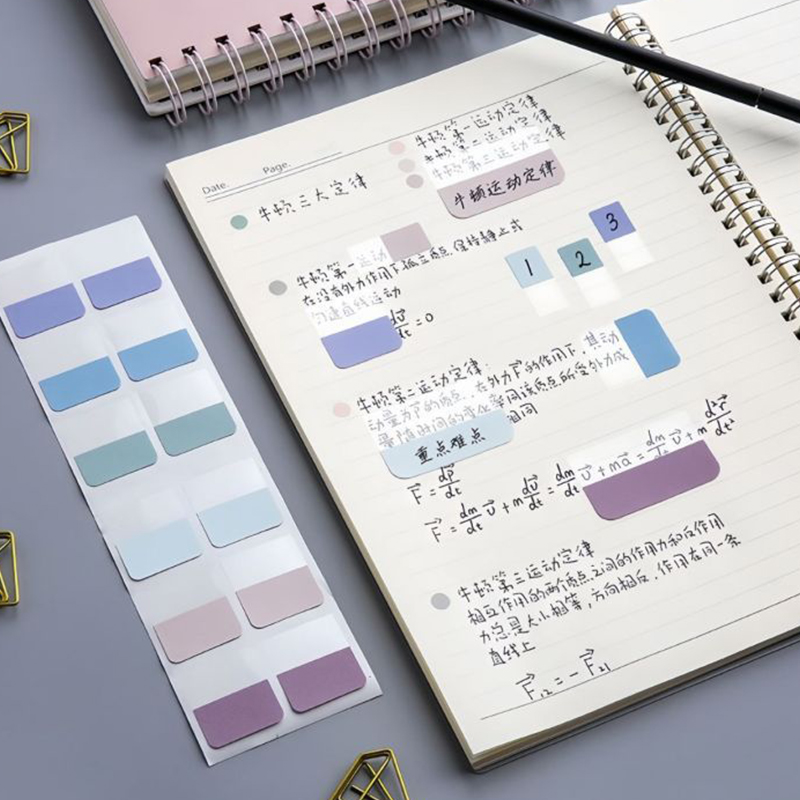 Date.
Page.
牛顿三大定律
牛顿第一运动定律
牛顿第二运动定律
牛顿第三运动定律
牛顿运动定律
牛顿第一运动
在没有外力作用下孤立质点保持静止或
匀速直线运动
dv⃗/dt = 0
1
2
3
牛顿第二运动定律:
动量为P⃗的质点,在外力F⃗的作用下,其动
量随时间的变化率同该质点所受外力成
相同
重点难点
F⃗ = dP⃗/dt
F⃗ = dm/dt v⃗ + m dv⃗/dt = dm/dt v⃗ + ma⃗ = dm/dt v⃗ + m d²r⃗/dt²
牛顿第三运动定律
相互作用的两个质点之间的作用力和反作用
力总是大小相等,方向相反,作用在同一条
直线上
F⃗₁₂ = −F⃗₂₁